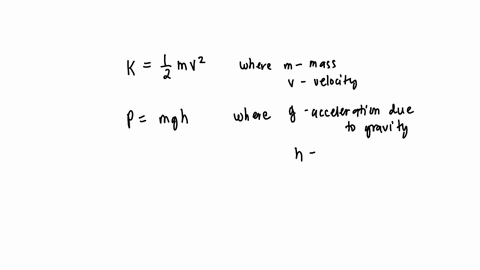 K = 1/2 mv² where m - mass
v - velocity
P = mgh where g - acceleration due
to gravity
h -